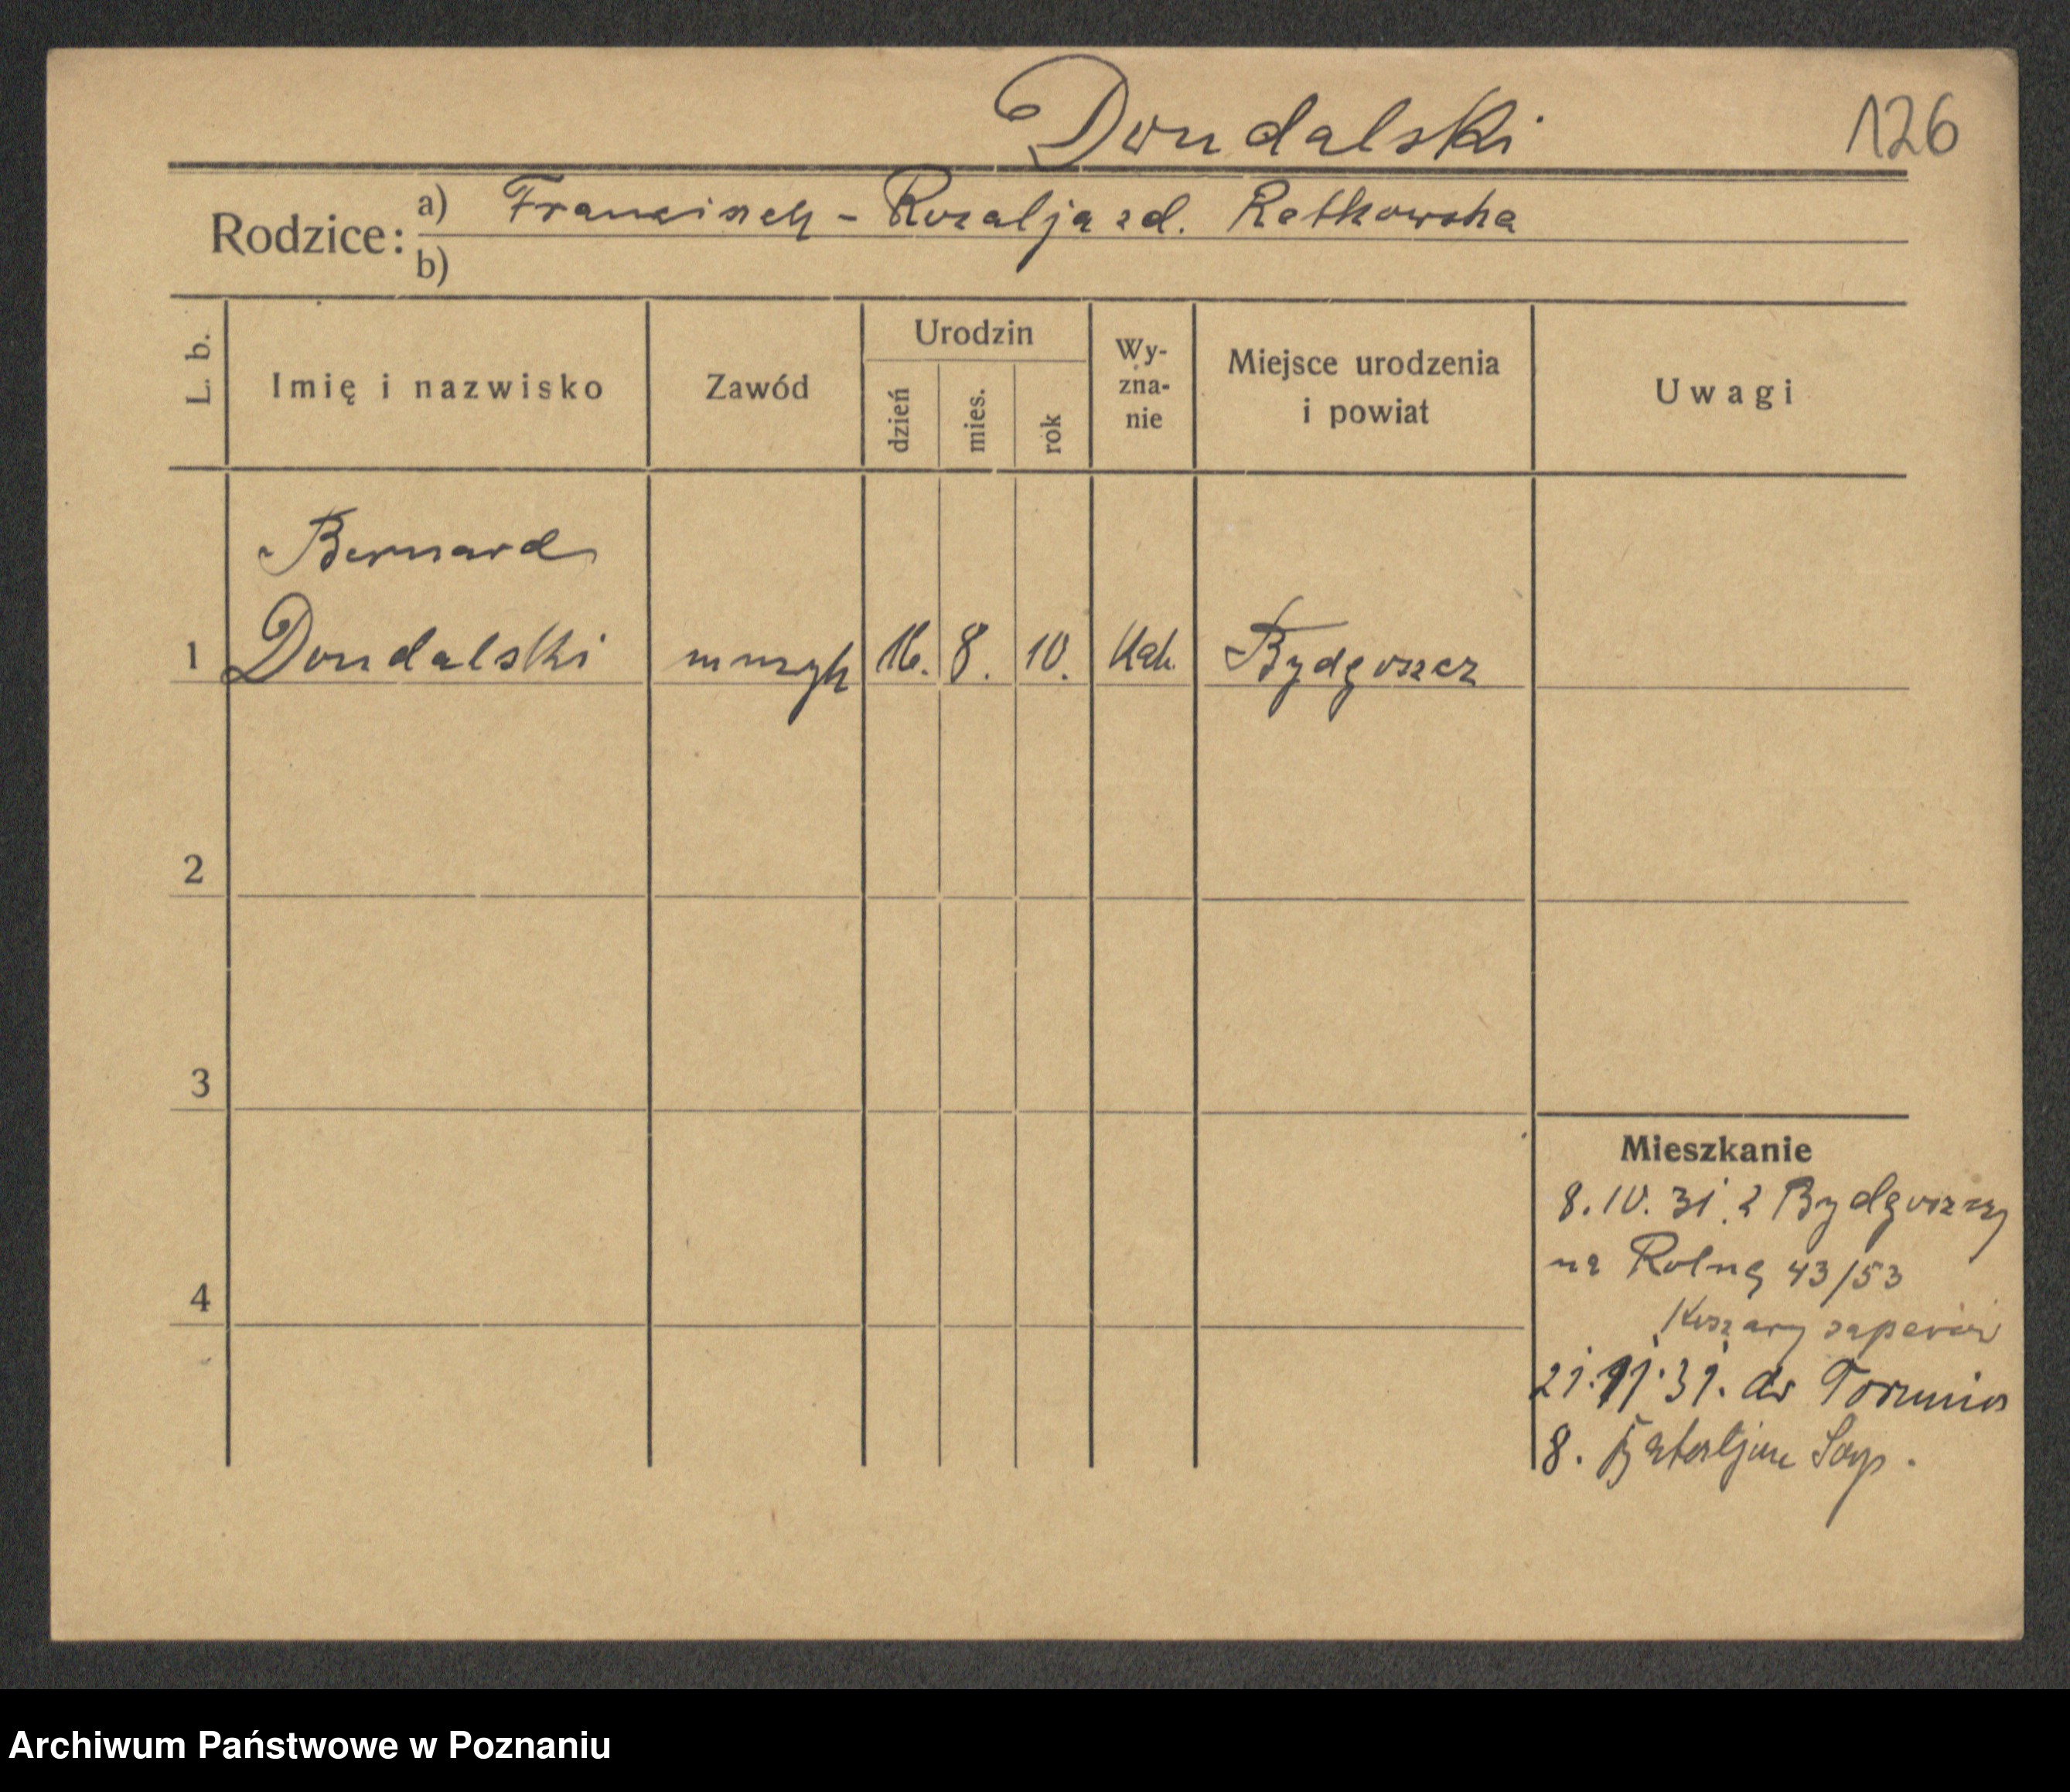 Dondalski
126
Rodzice:
a) Franciszek - Rozalja zd. Ratkowska
b)
L. b.
Imię i nazwisko
Zawód
Urodzin
dzień
mies.
rok
Wy-
zna-
nie
Miejsce urodzenia
i powiat
Uwagi
Bernard
1 Dondalski muzyk 16. 8. 10. Kat. Bydgoszcz
2
3
4
Mieszkanie
8. 10. 31. z Bydgoszczy
na Rolną 43/53
Koszary saperów
21. 31. do Torunia
8. Bataljon Sap.
Archiwum Państwowe w Poznaniu